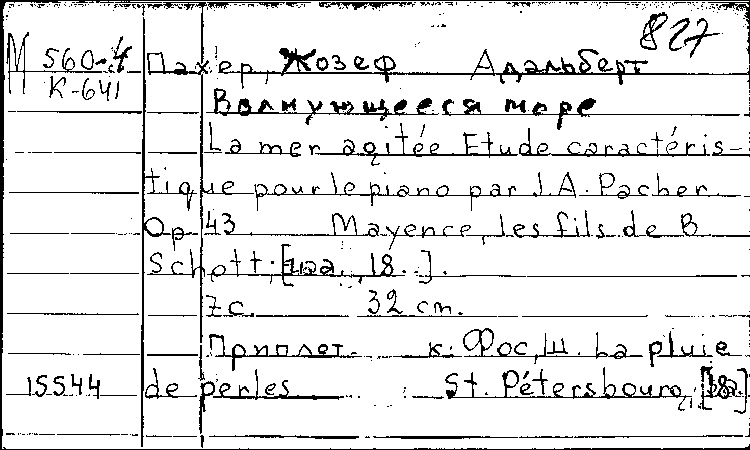 827
М 560-4 Пахер, Жозеф Адальберт
К-641
Волнующееся море
La mer agitée. Etude caractéris-
tique pour le piano par J.A. Pacher.
Op 43 Mayence, les fils de B
Schott, 18..].
7 с. 32 cm.
Приплет. к: Фос, Ш. La pluie
15544 de perles St. Pétersbourg,